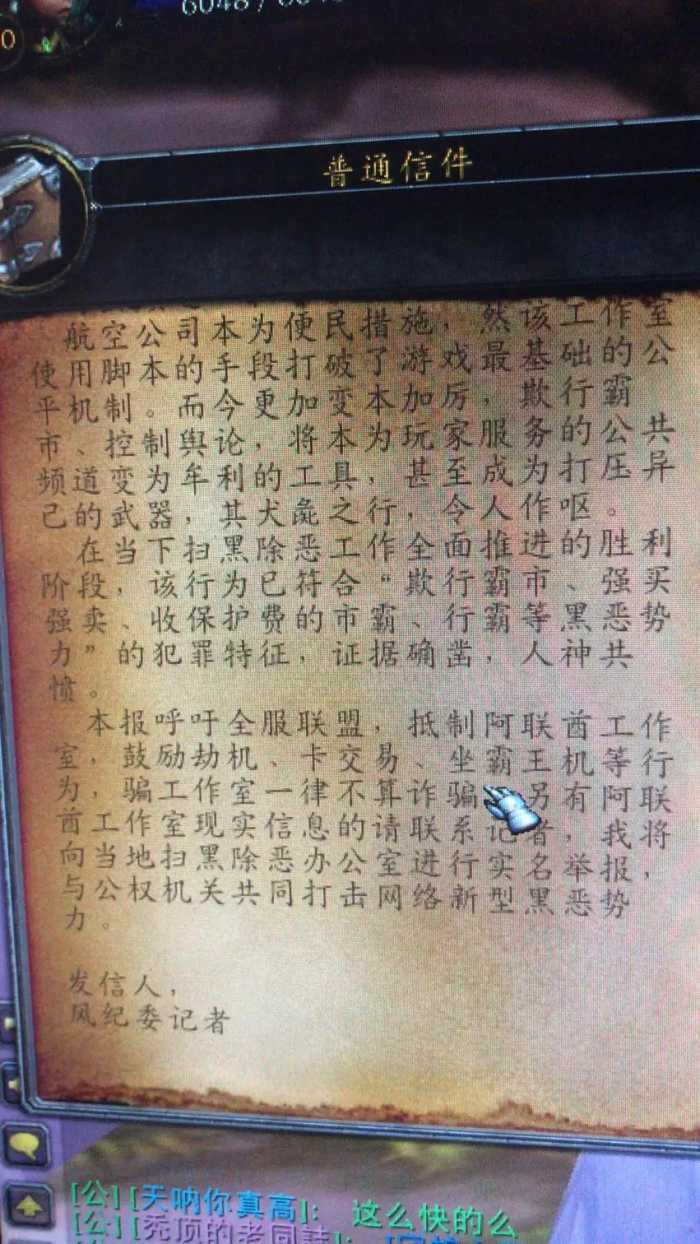 6048 /
0
普通信件
航空公司本为便民措施，然该工作室
使用脚本的手段打破了游戏最基础的公
平机制。而今更加变本加厉，欺行霸
市、控制舆论，将本为玩家服务的公共
频道变为牟利的工具，甚至成为打压异
己的武器，其犬彘之行，令人作呕。
在当下扫黑除恶工作全面推进的胜利
阶段，该行为已符合“欺行霸市、强买
强卖、收保护费的市霸、行霸等黑恶势
力”的犯罪特征，证据确凿，人神共
愤。
本报呼吁全服联盟，抵制阿联酋工作
室，鼓励劫机、卡交易、坐霸王机等行
为，骗工作室一律不算诈骗 另有阿联
酋工作室现实信息的请联系记者，我将
向当地扫黑除恶办公室进行实名举报，
与公权机关共同打击网络新型黑恶势
力。
发信人，
风纪委记者
[公][天呐你真高]： 这么快的么
[公][秃顶的老同誌]：